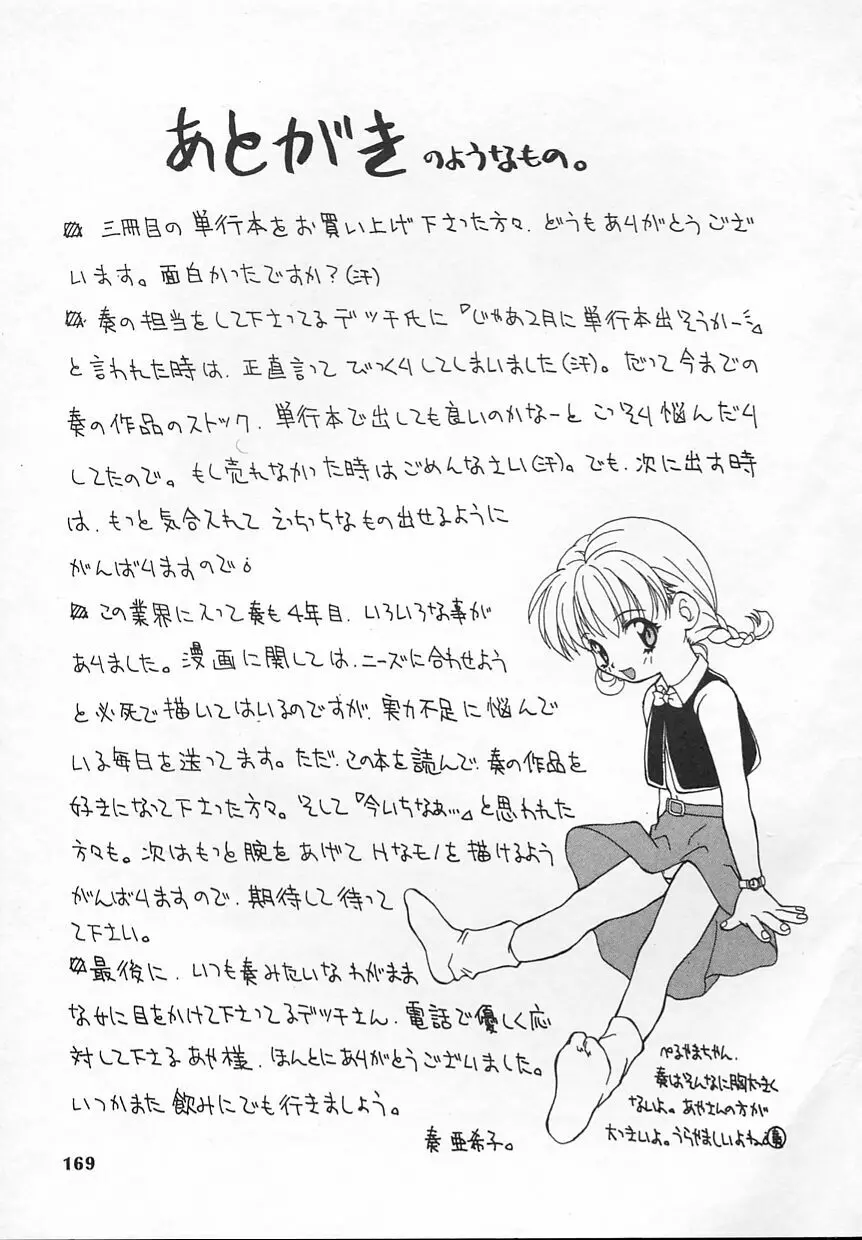 あとがきのようなもの。
▨ 三冊目の単行本をお買い上げ下さった方々、どうもありがとうござ
います。面白かったですか?(汗)
▨ 奏の担当をして下さってるデッチ氏に『じゃあ2月に単行本出そうかー』
と言われた時は、正直言ってびっくりしてしまいました(汗)。だって今までの
奏の作品のストック、単行本で出しても良いのかなーとこっそり悩んだり
してたので。もし売れなかった時はごめんなさい(汗)。でも、次に出す時
は、もっと気合入れてえっちっちなもの出せるように
がんばりますので。
▨ この業界に入って奏も4年目、いろいろな事が
ありました。漫画に関しては、ニーズに合わせよう
と必死で描いてはいるのですが、実力不足に悩んで
いる毎日を送ってます。ただ、この本を読んで、奏の作品を
好きになって下さった方々。そして『今いちなぁ…』と思われた
方々も。次はもっと腕をあげてHなモノを描けるよう
がんばりますので、期待して待って
て下さい。
▨最後に、いつも奏みたいなわがまま
な女に目をかけて下さってるデッチさん、電話で優しく応
対して下さるあや様、ほんとにありがとうございました。
いつかまた飲みにでも行きましょう。
奏 亜希子。
ぺるやまちゃん、
奏はそんなに胸大きく
ないよ。あやさんの方が
大っきいよ。うらやましいよねぇ
169